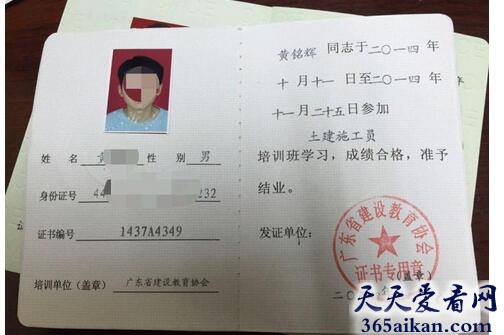 姓 名 黄 性 别 男
身份证号 44 232
证书编号 1437A4349
培训单位（盖章） 广东省建设教育协会
黄铭辉 同志于二〇一四年
十月十一日至二〇一四年
十一月二十五日参加
土建施工员
培训班学习，成绩合格，准予
结业。
发证单位：
广东省建设教育协会
证书专用章
（盖章）
二〇
天天爱看网
365aikan.com